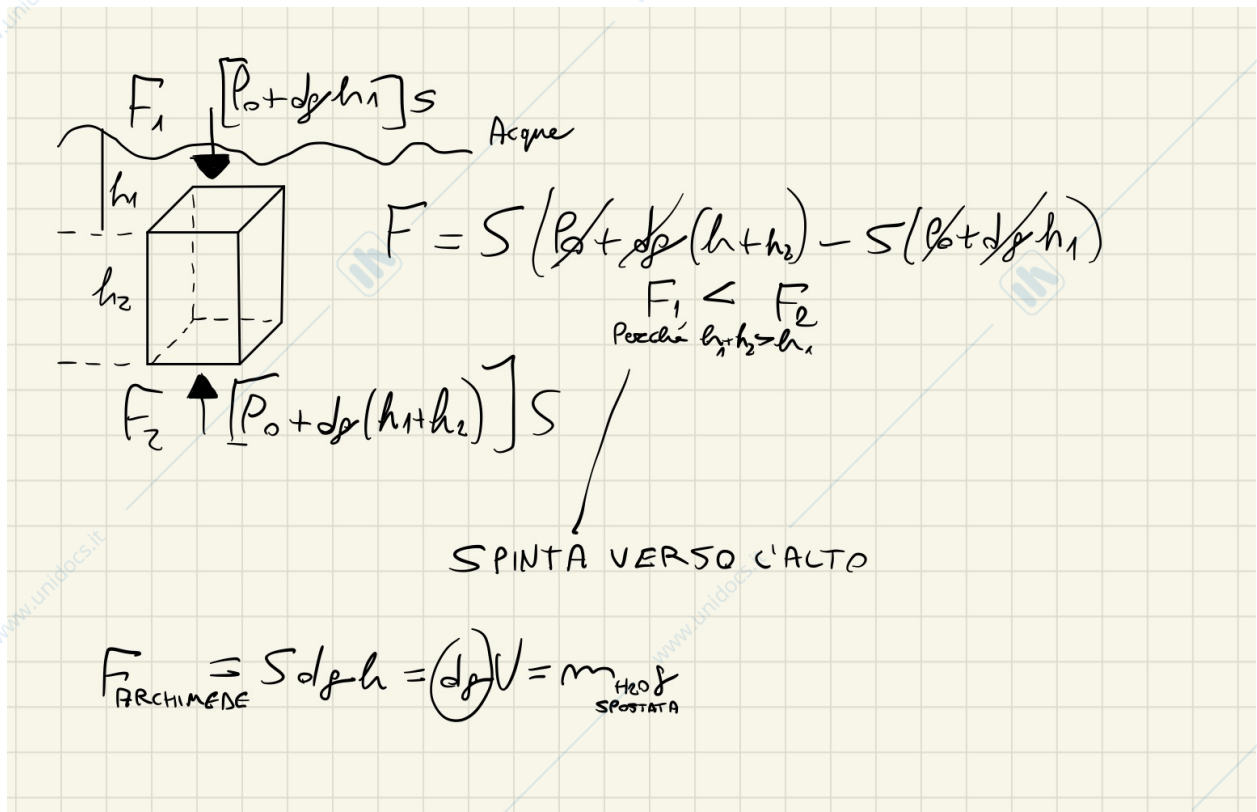 F₁ [P₀+dgh₁]S
Acqua
h₁
h₂
F = S(P₀+dg(h+h₂)-S(P₀+dgh₁)
F₁ < F₂
Perché h₁+h₂>h₁
F₂ [P₀+dg(h₁+h₂)]S
SPINTA VERSO L'ALTO
F ARCHIMEDE = Sdgh = (dg)V = m H2O SPOSTATA g
www.unidocs.it
www.unidocs.it